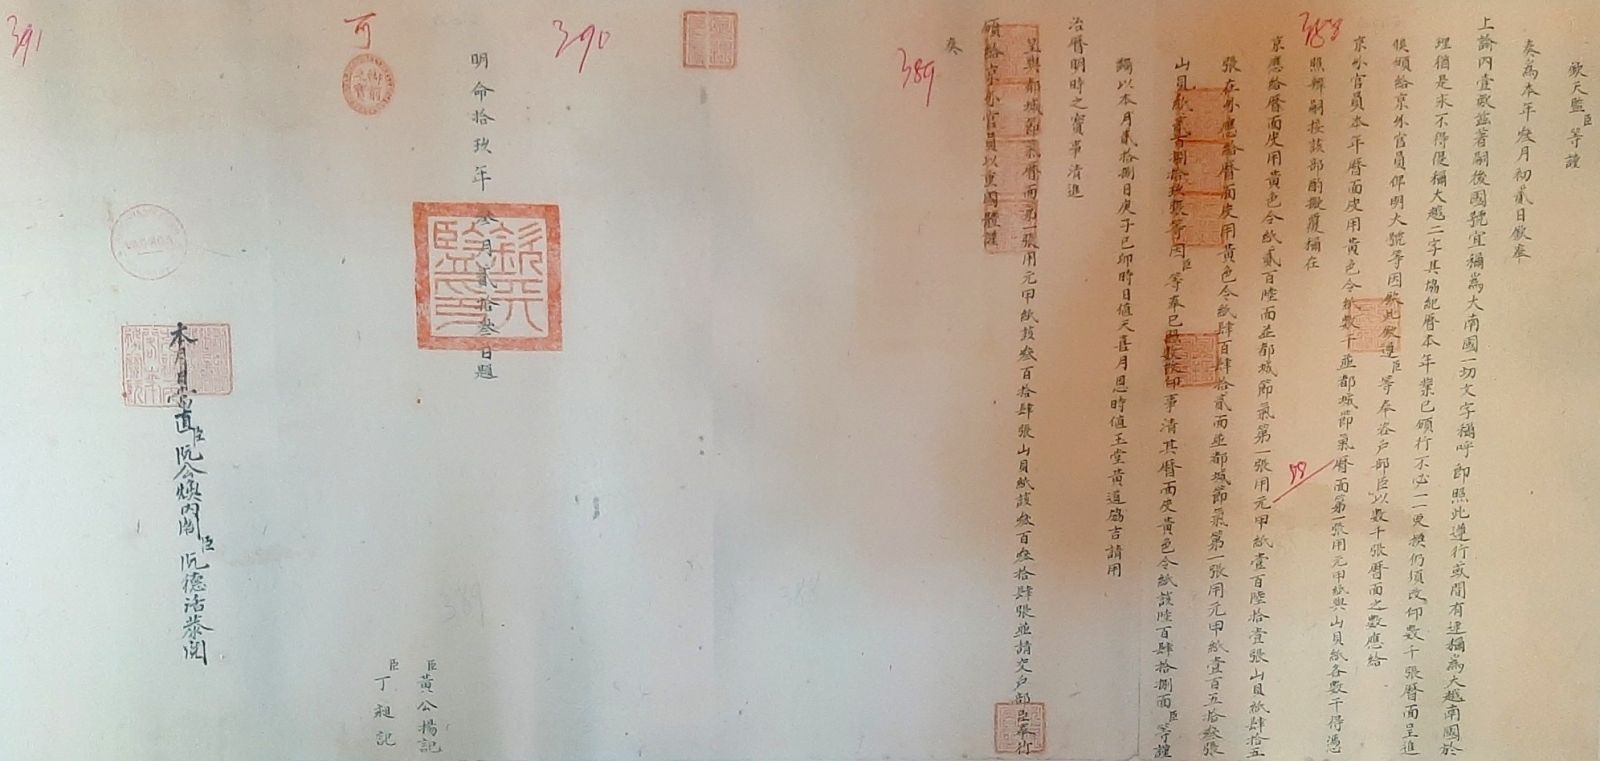 388
欽天監臣等謹
奏為本年叄月初貳日欽奉
上諭內壹歀茲著嗣後國號宜稱爲大南國一切文字稱呼即照此遵行或間有連稱爲大越南國於
理猶是末不得復稱大越二字其協紀曆本年業已頒行不必一一更換仍須改印數千張曆面呈進
候頒給京外官員俾明大號等因欽此欽遵臣等奉咨戶部臣以數千張曆面之數應給
京外官員本年曆面皮用黃色令紙數千並都城節氣曆面第一張用元甲紙與山貝紙各數千得憑
照辦嗣接該部酌擬覆稱在
京應給曆面皮用黃色令紙貳百陸面並都城節氣第一張用元甲紙壹百陸拾壹張山貝紙肆拾五
張在外應給曆面皮用黃色令紙肆百肆拾貳面並都城節氣第一張用元甲紙壹百五拾叄張
山貝紙貳百捌拾玖張等因臣等奉已照數改印事清其曆面皮黃色令紙該陸百肆拾捌面臣等謹
蠲以本月貳拾捌日庚子己卯時日值天喜月恩時值玉堂黃道協吉請用
治曆明時之寶事清進
呈與都城節氣曆面第一張用元甲紙該叄百拾肆張山貝紙該叄百叄拾肆張並請交戶部臣奉行
頒給京外官員以重國體謹
奏
389
88
390
明命拾玖年叄月貳拾叄日題
欽天監印
臣黃公揚記
臣丁昶記
可
御前之寶
391
本月日當直臣阮公煥內閣臣阮德活恭閱
389
388